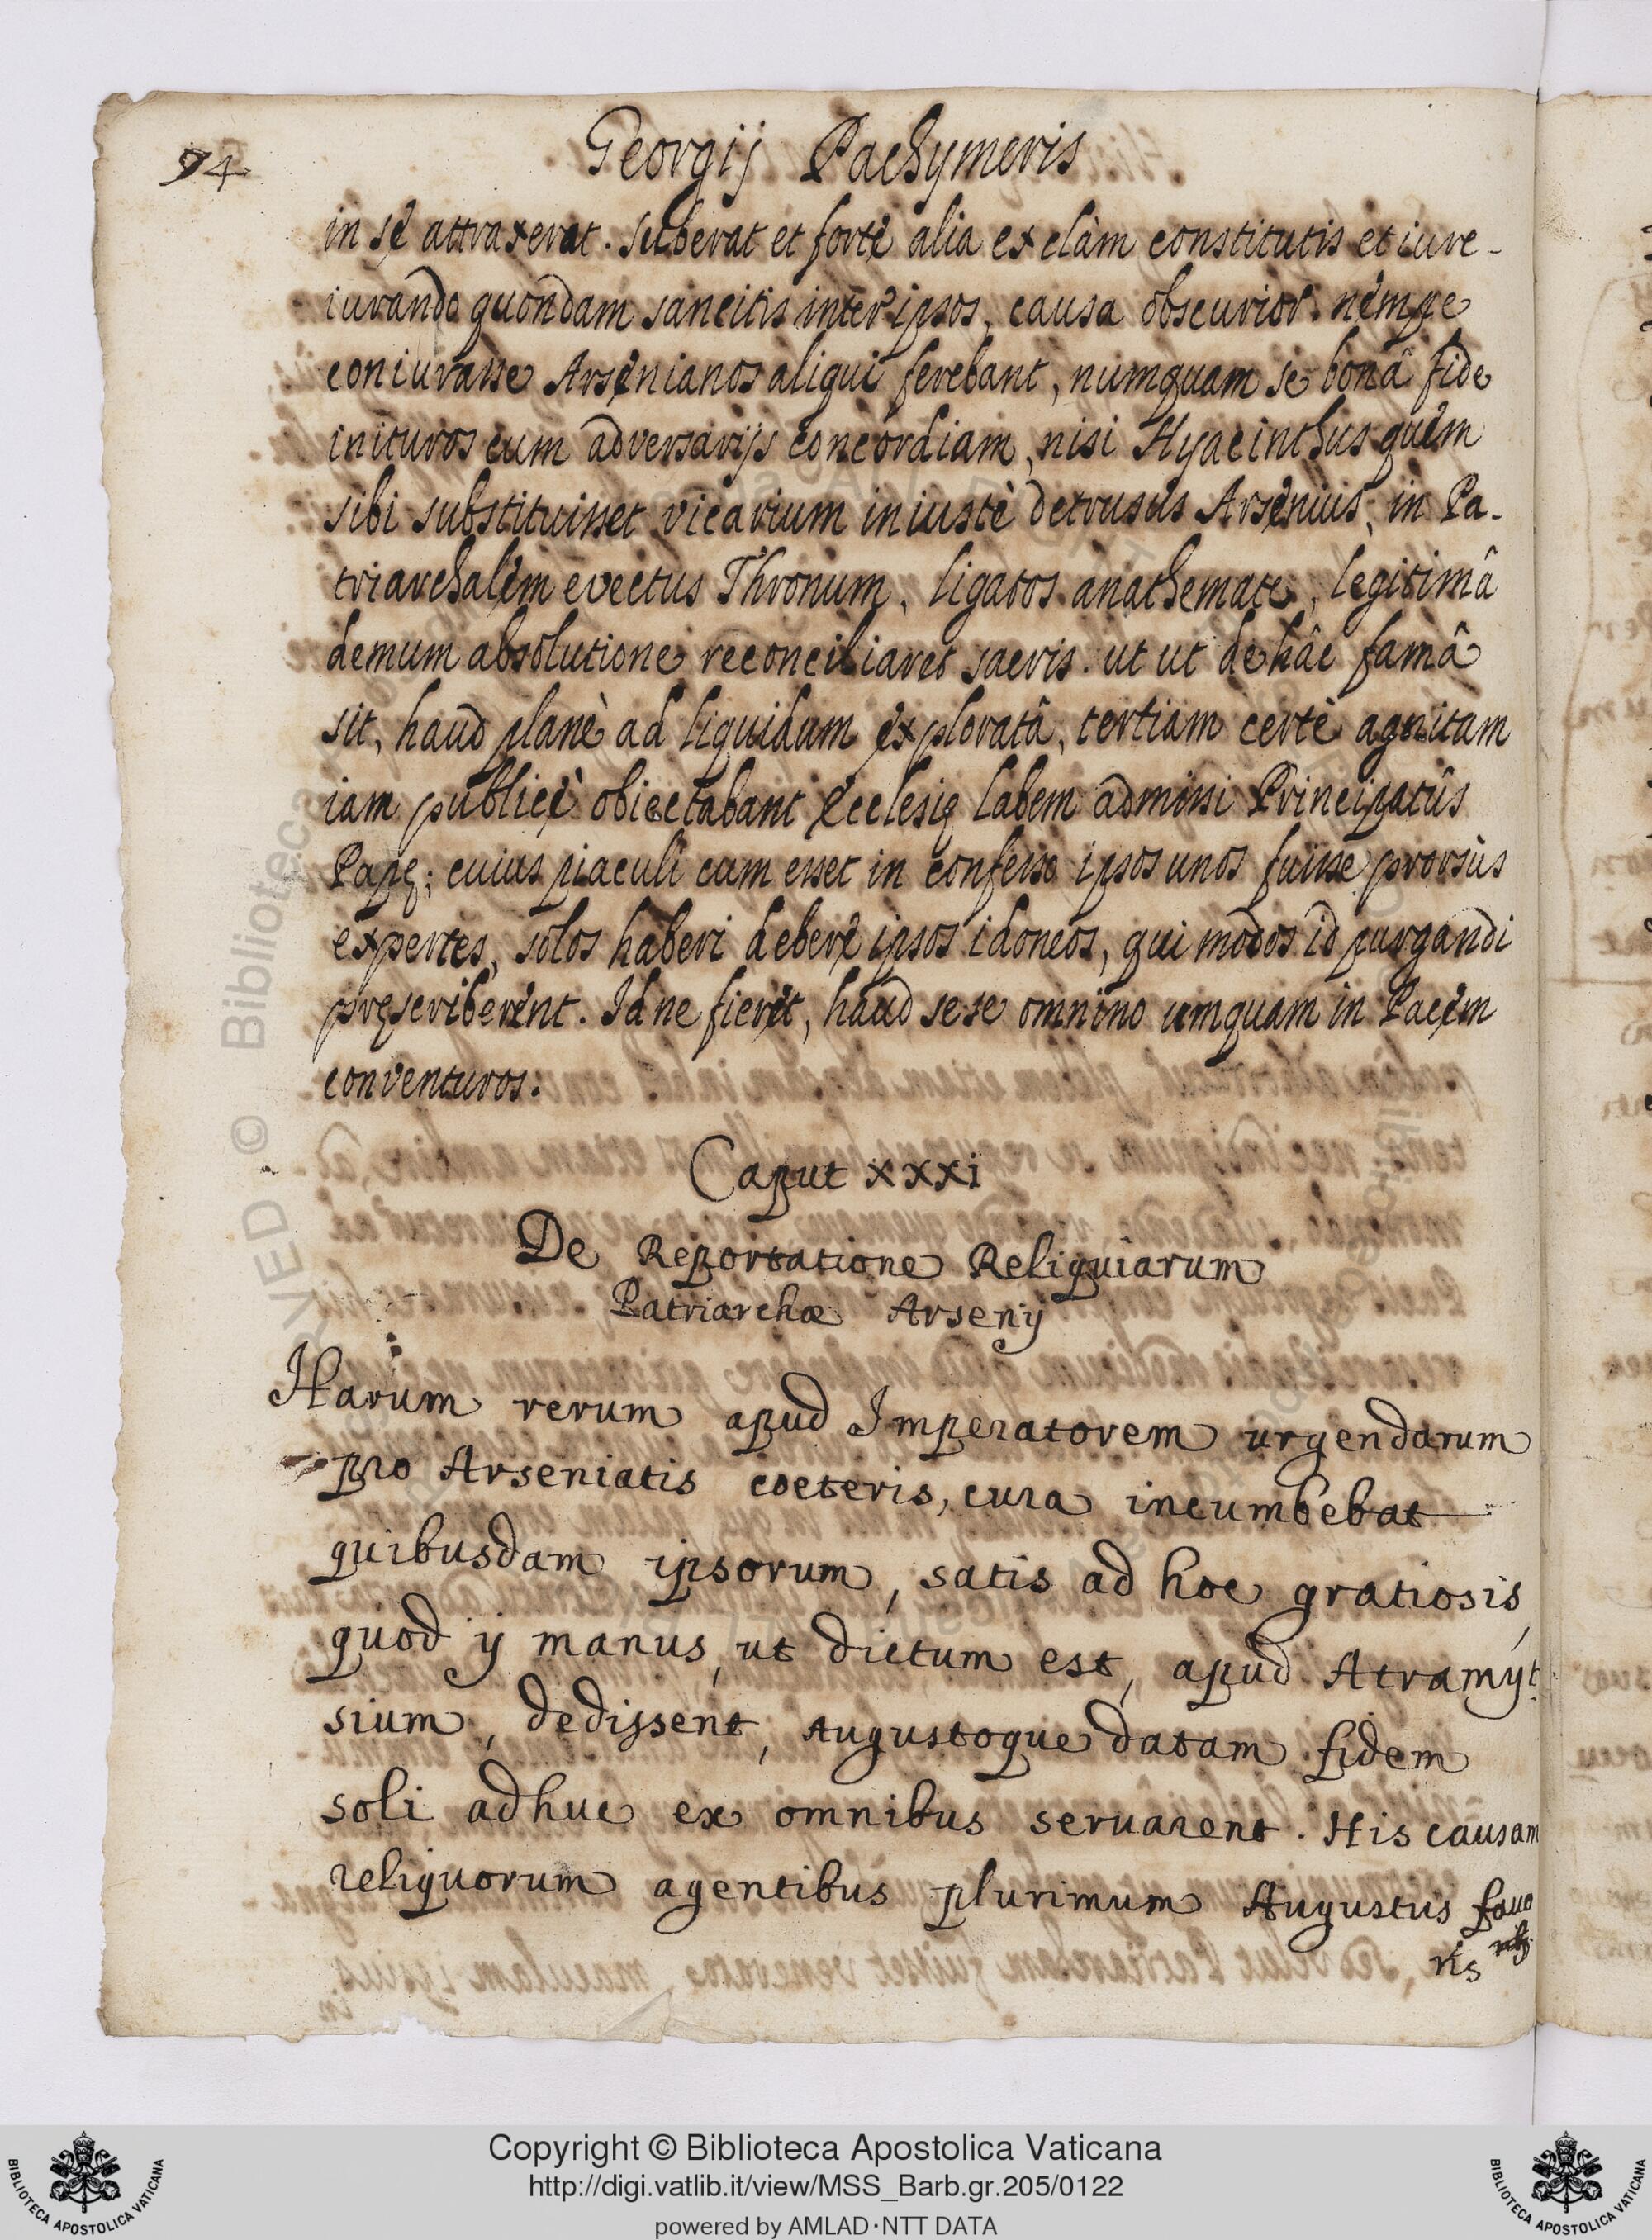 94
Georgij Pachymeris
in se attraxerat. suberat et fortè alia ex clàm constitutis et iure-
iurando quondam sancitis inter ipsos, causa obscurior. nempe
coniurasse Arsenianos aliqui ferebant, numquam se bonâ fide
inituros cum adversarijs concordiam, nisi Hyacinthus quem
sibi substituisset vicarium iniustè detrusus Arsenius, in Pa-
triarchalem evectus Thronum, ligatos anathemate, legitimâ
demum absolutione reconciliaret sacris. ut ut de hâc famâ
sit, haud planè ad liquidum exploratâ, tertiam certè agnitam
iam publicè obiectabant Ecclesię labem admissi Principatûs
Papę; cuius piaculi cum esset in confesso ipsos unos fuisse prorsùs
expertes, solos haberi debere ipsos idoneos, qui modos id purgandi
pręscriberent. Id ne fieret, haud sese omnino umquam in Pacem
conventuros.
Caput xxxi
De Reportatione Reliquiarum
Patriarchæ Arsenij
Harum rerum apud Imperatorem urgendarum
pro Arseniatis cœteris, cura incumbebat
quibusdam ipsorum, satis ad hoc gratiosis,
quod ij manus, ut dictum est, apud Atramyt-
sium, dedissent, Augustoque datam fidem
soli adhuc ex omnibus seruarent. His causam
reliquorum agentibus plurimum Augustus fauo
ris
Copyright © Biblioteca Apostolica Vaticana
http://digi.vatlib.it/view/MSS_Barb.gr.205/0122
powered by AMLAD·NTT DATA
BIBLIOTECA APOSTOLICA VATICANA
BIBLIOTECA APOSTOLICA VATICANA